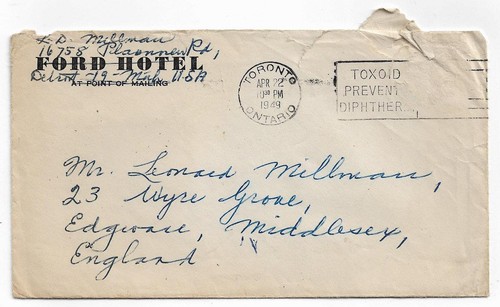 L. D. Millman
16758 Rd,
FORD HOTEL
Detroit 19 - Mich USA
AT POINT OF MAILING
TORONTO
APR 22
10 PM
1949
ONTARIO
TOXOID
PREVENT
DIPHTHER
Mr. Leonard Millman,
23 Wyre Grove,
Edgware, Middlesex,
England